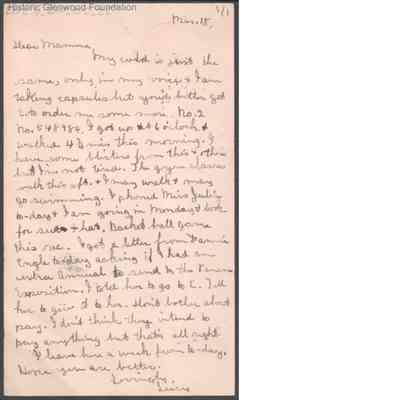 Historic Glenwood Foundation
Mar. 18,
Dear Mamma,
My cold is just the
same, only in my voice & I am
taking capsules but you'd better get
to order me some more. No. 2
No. 548984. I got up at 6 o'clock &
walked 4 3 mis this morning. I
have some blisters from this & other
but I'm not tired. The gym classes
walk this aft. & I may walk & may
go swimming. I phoned Miss July
to-day & I am going in Monday & look
for suit & hat. Basket ball game
this eve. I got a letter from Fannie
Engle to-day asking if I had an
extra Annual to send to the
Exposition. I told her to go to E. Tell
her to give it to her. Don't bother about
pay. I don't think they intend to
pay anything but that's all right
I leave here a week from to-day.
Hope you are better.
Lovingly,